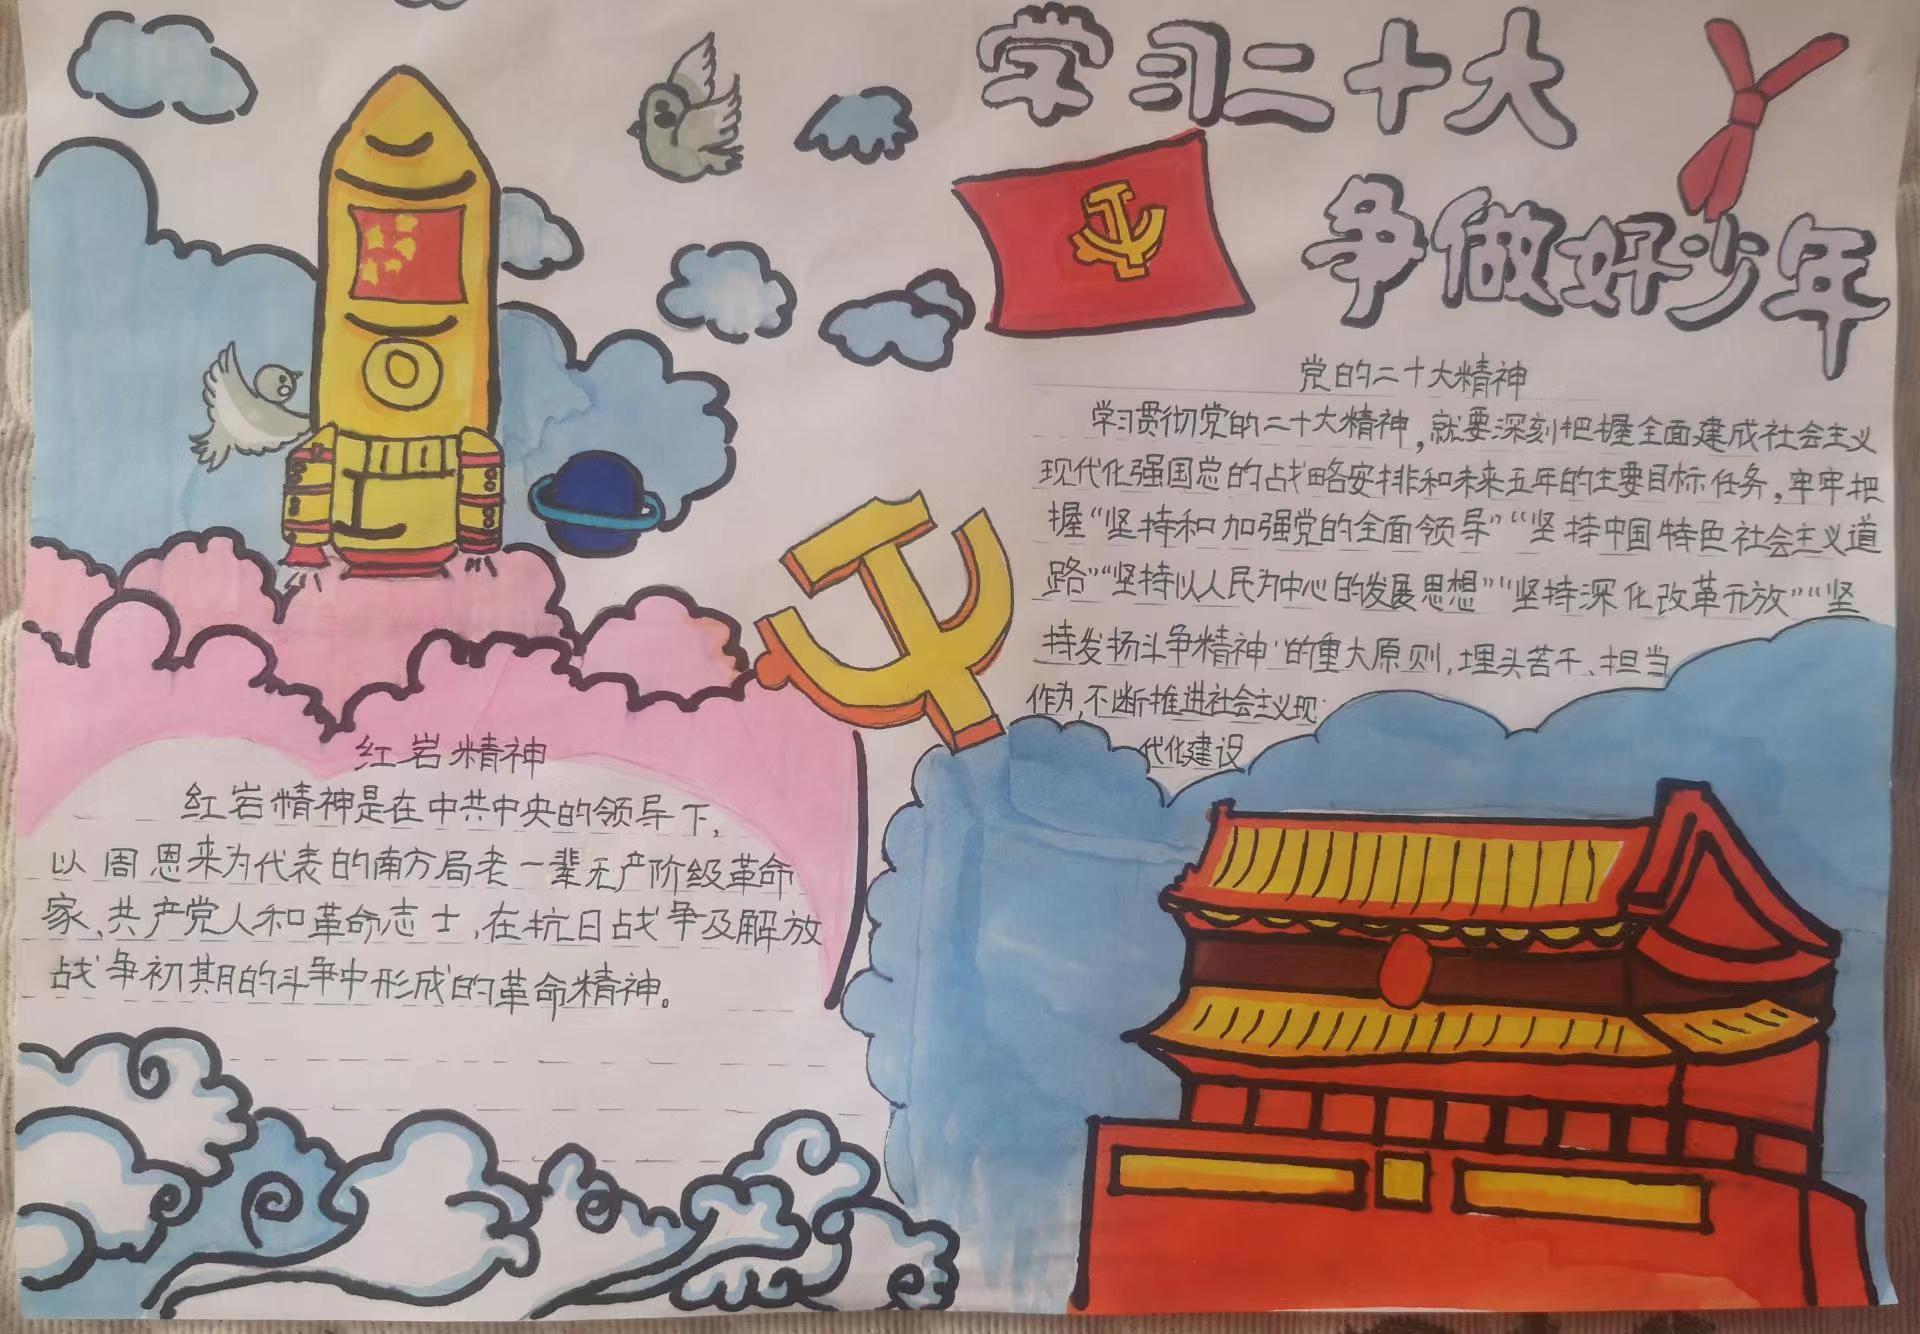 学习二十大
争做好少年
党的二十大精神
学习贯彻党的二十大精神，就要深刻把握全面建成社会主义
现代化强国总的战略安排和未来五年的主要目标任务，牢牢把
握“坚持和加强党的全面领导”“坚持中国特色社会主义道
路”“坚持以人民为中心的发展思想”“坚持深化改革开放”“坚
持发扬斗争精神”的重大原则，埋头苦干、担当
作为，不断推进社会主义现
代化建设
红岩精神
红岩精神是在中共中央的领导下，
以周恩来为代表的南方局老一辈无产阶级革命
家、共产党人和革命志士，在抗日战争及解放
战争初期的斗争中形成的革命精神。